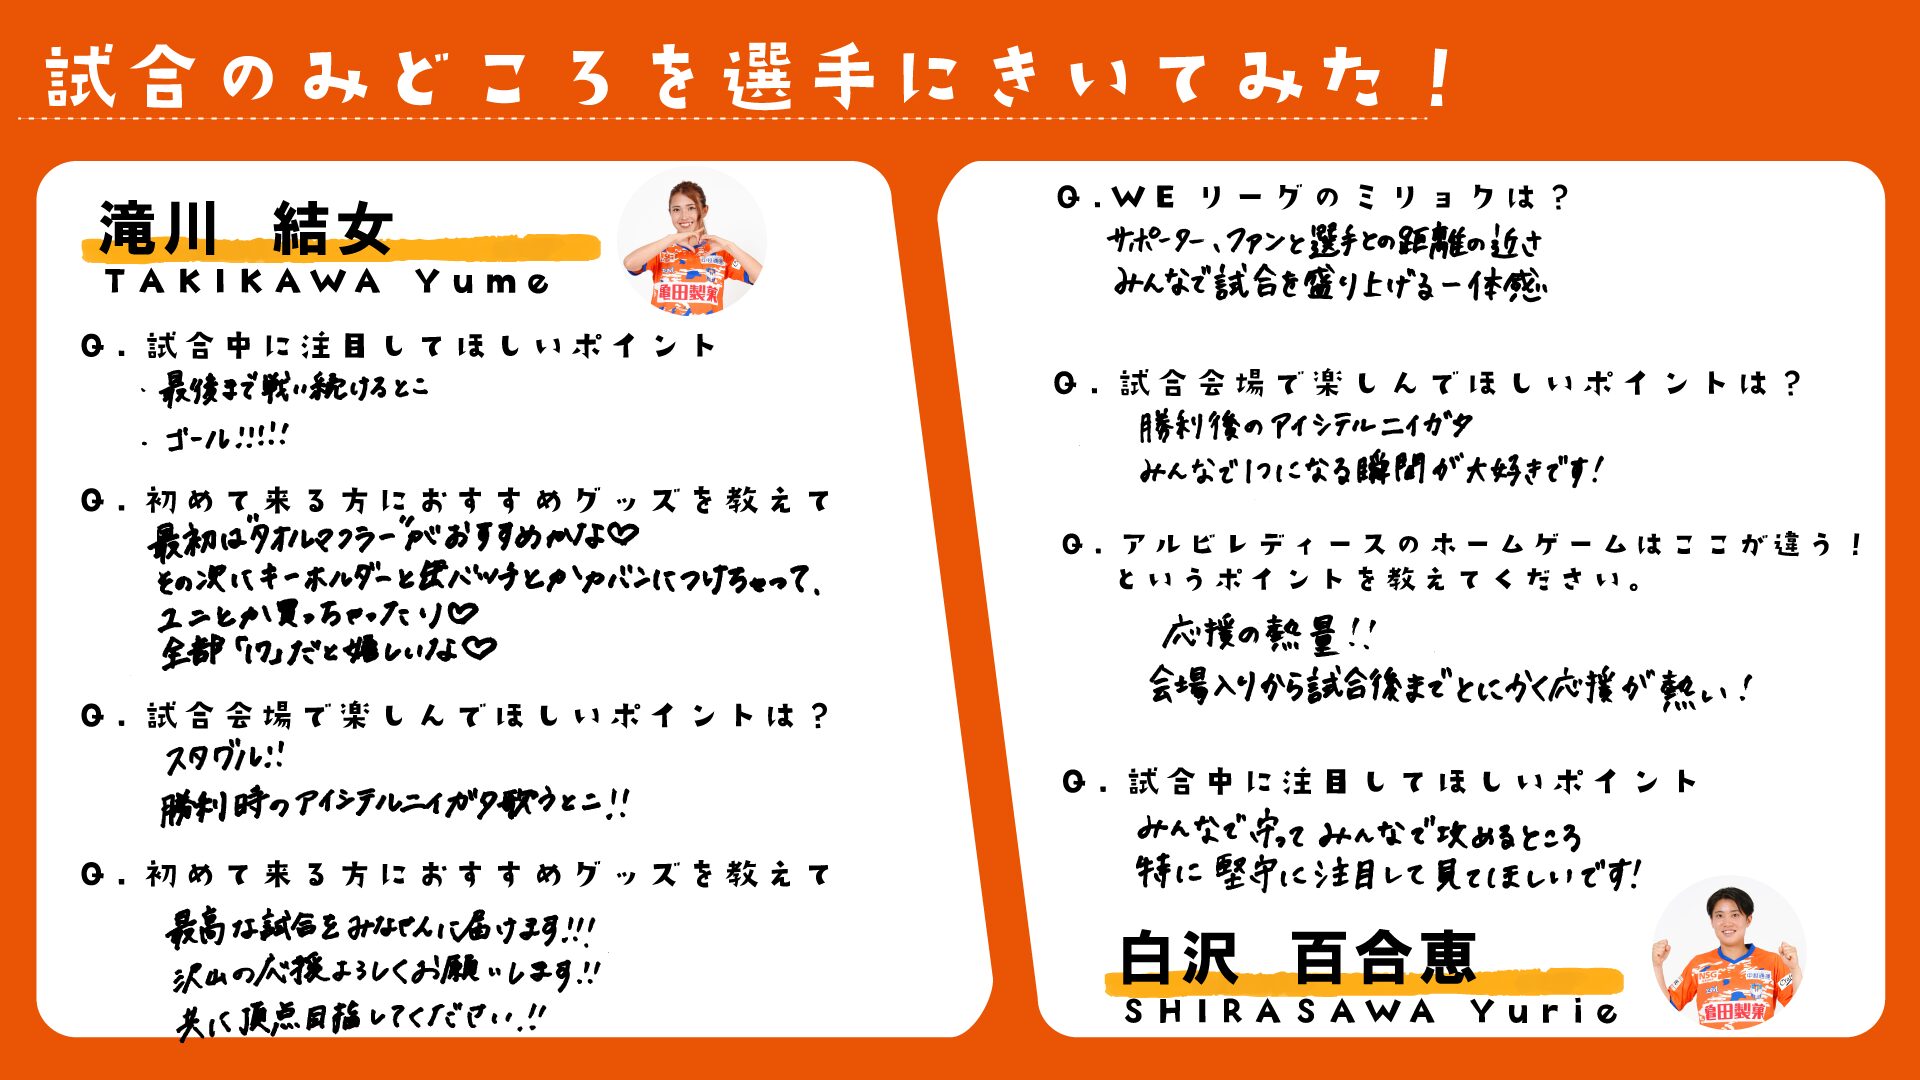 試合のみどころを選手にきいてみた！
滝川 結女
TAKIKAWA Yume
Q.試合中に注目してほしいポイント
・最後まで戦い続けるとこ
・ゴール!!!!!
Q.初めて来る方におすすめグッズを教えて
最初は"タオルマフラー"がおすすめかな♡
その次にキーホルダーと缶バッチとかカバンにつけちゃって、
ユニとか買っちゃったり♡
全部「17」だと嬉しいな♡
Q.試合会場で楽しんでほしいポイントは？
スタグル!!
勝利時のアイシテルニイガタ歌うとこ!!
Q.初めて来る方におすすめグッズを教えて
最高な試合をみなせんに届けます!!!
沢山の応援よろしくお願いします!!
共に頂点目指してください!!
Q.WEリーグのミリョクは？
サポーター、ファンと選手との距離の近さ
みんなで試合を盛り上げる一体感
Q.試合会場で楽しんでほしいポイントは？
勝利後のアイシテルニイガタ
みんなで1つになる瞬間が大好きです!
Q.アルビレディースのホームゲームはここが違う！
というポイントを教えてください。
応援の熱量!!
会場入りから試合後までとにかく応援が熱い!
Q.試合中に注目してほしいポイント
みんなで守ってみんなで攻めるところ
特に堅守に注目して見てほしいです!
白沢 百合恵
SHIRASAWA Yurie
亀田製菓
NSG
亀田製菓